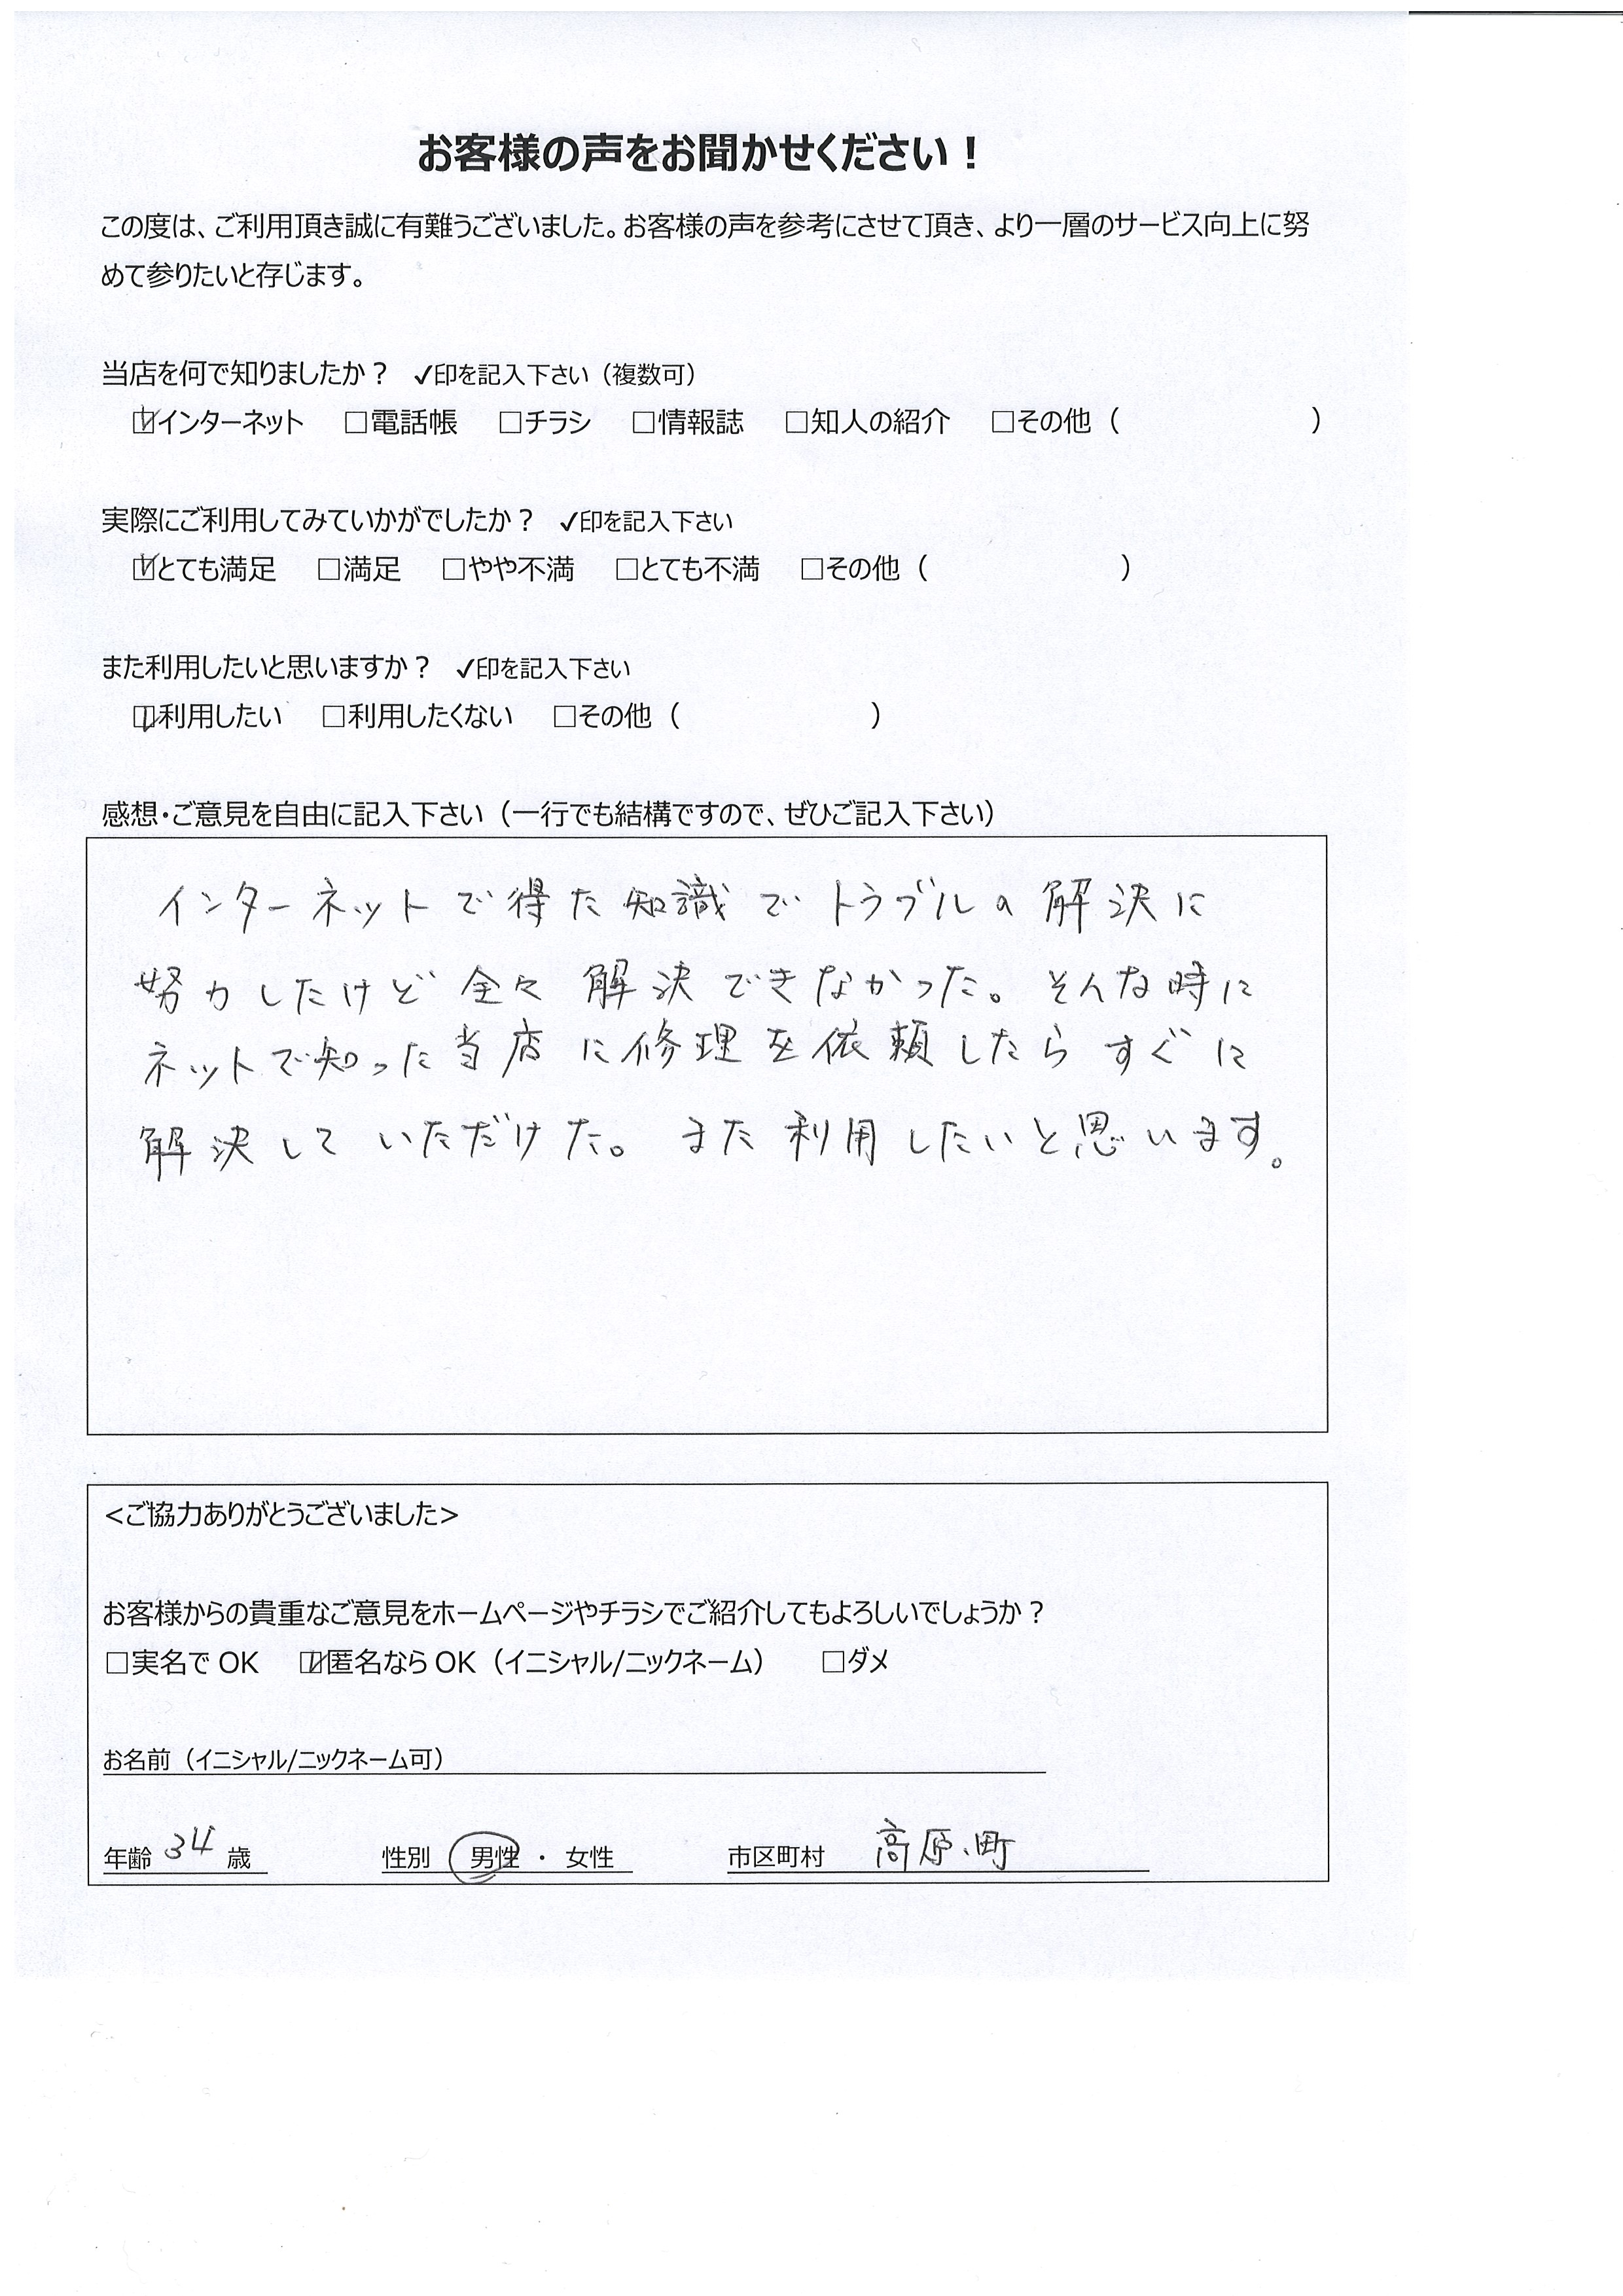 お客様の声をお聞かせください！
この度は、ご利用頂き誠に有難うございました。お客様の声を参考にさせて頂き、より一層のサービス向上に努
めて参りたいと存じます。
当店を何で知りましたか？ ✓印を記入下さい（複数可）
☑インターネット □電話帳 □チラシ □情報誌 □知人の紹介 □その他（ ）
実際にご利用してみていかがでしたか？ ✓印を記入下さい
☑とても満足 □満足 □やや不満 □とても不満 □その他（ ）
また利用したいと思いますか？ ✓印を記入下さい
☑利用したい □利用したくない □その他（ ）
感想・ご意見を自由に記入下さい（一行でも結構ですので、ぜひご記入下さい）
インターネットで得た知識でトラブルの解決に
努力したけど全々解決できなかった。そんな時に
ネットで知った当店に修理を依頼したらすぐに
解決していただけた。また利用したいと思います。
<ご協力ありがとうございました>
お客様からの貴重なご意見をホームページやチラシでご紹介してもよろしいでしょうか？
□実名で OK ☑匿名なら OK（イニシャル/ニックネーム） □ダメ
お名前（イニシャル/ニックネーム可）
年齢 34 歳 性別 男性 ・ 女性 市区町村 高原町